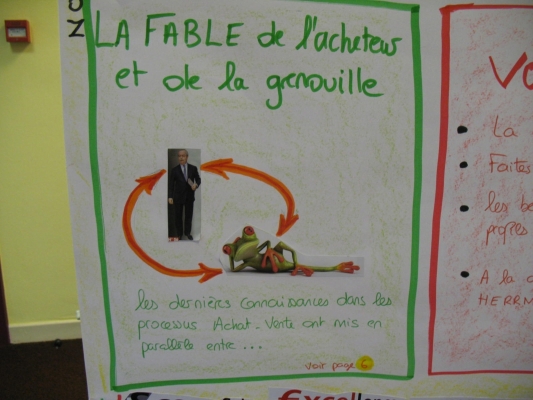 LA FABLE de l'acheteur
et de la grenouille
les dernières connaissances dans les
processus Achat-Vente ont mis en
parallèle entre ...
voir page 6
La
Faites
les be
propres
A la
HERRM